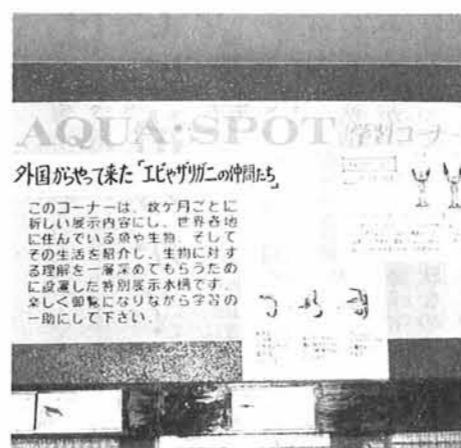 AQUA・SPOT 学習コーナー
外国からやって来た「エビやザリガニの仲間たち」
このコーナーは、数ケ月ごとに
新しい展示内容にし、世界各地
に住んでいる魚や生物、そして
その生活を紹介し、生物に対す
る理解を一層深めてもらうため
に設置した特別展示水槽です。
楽しく御覧になりながら学習の
一助にして下さい。